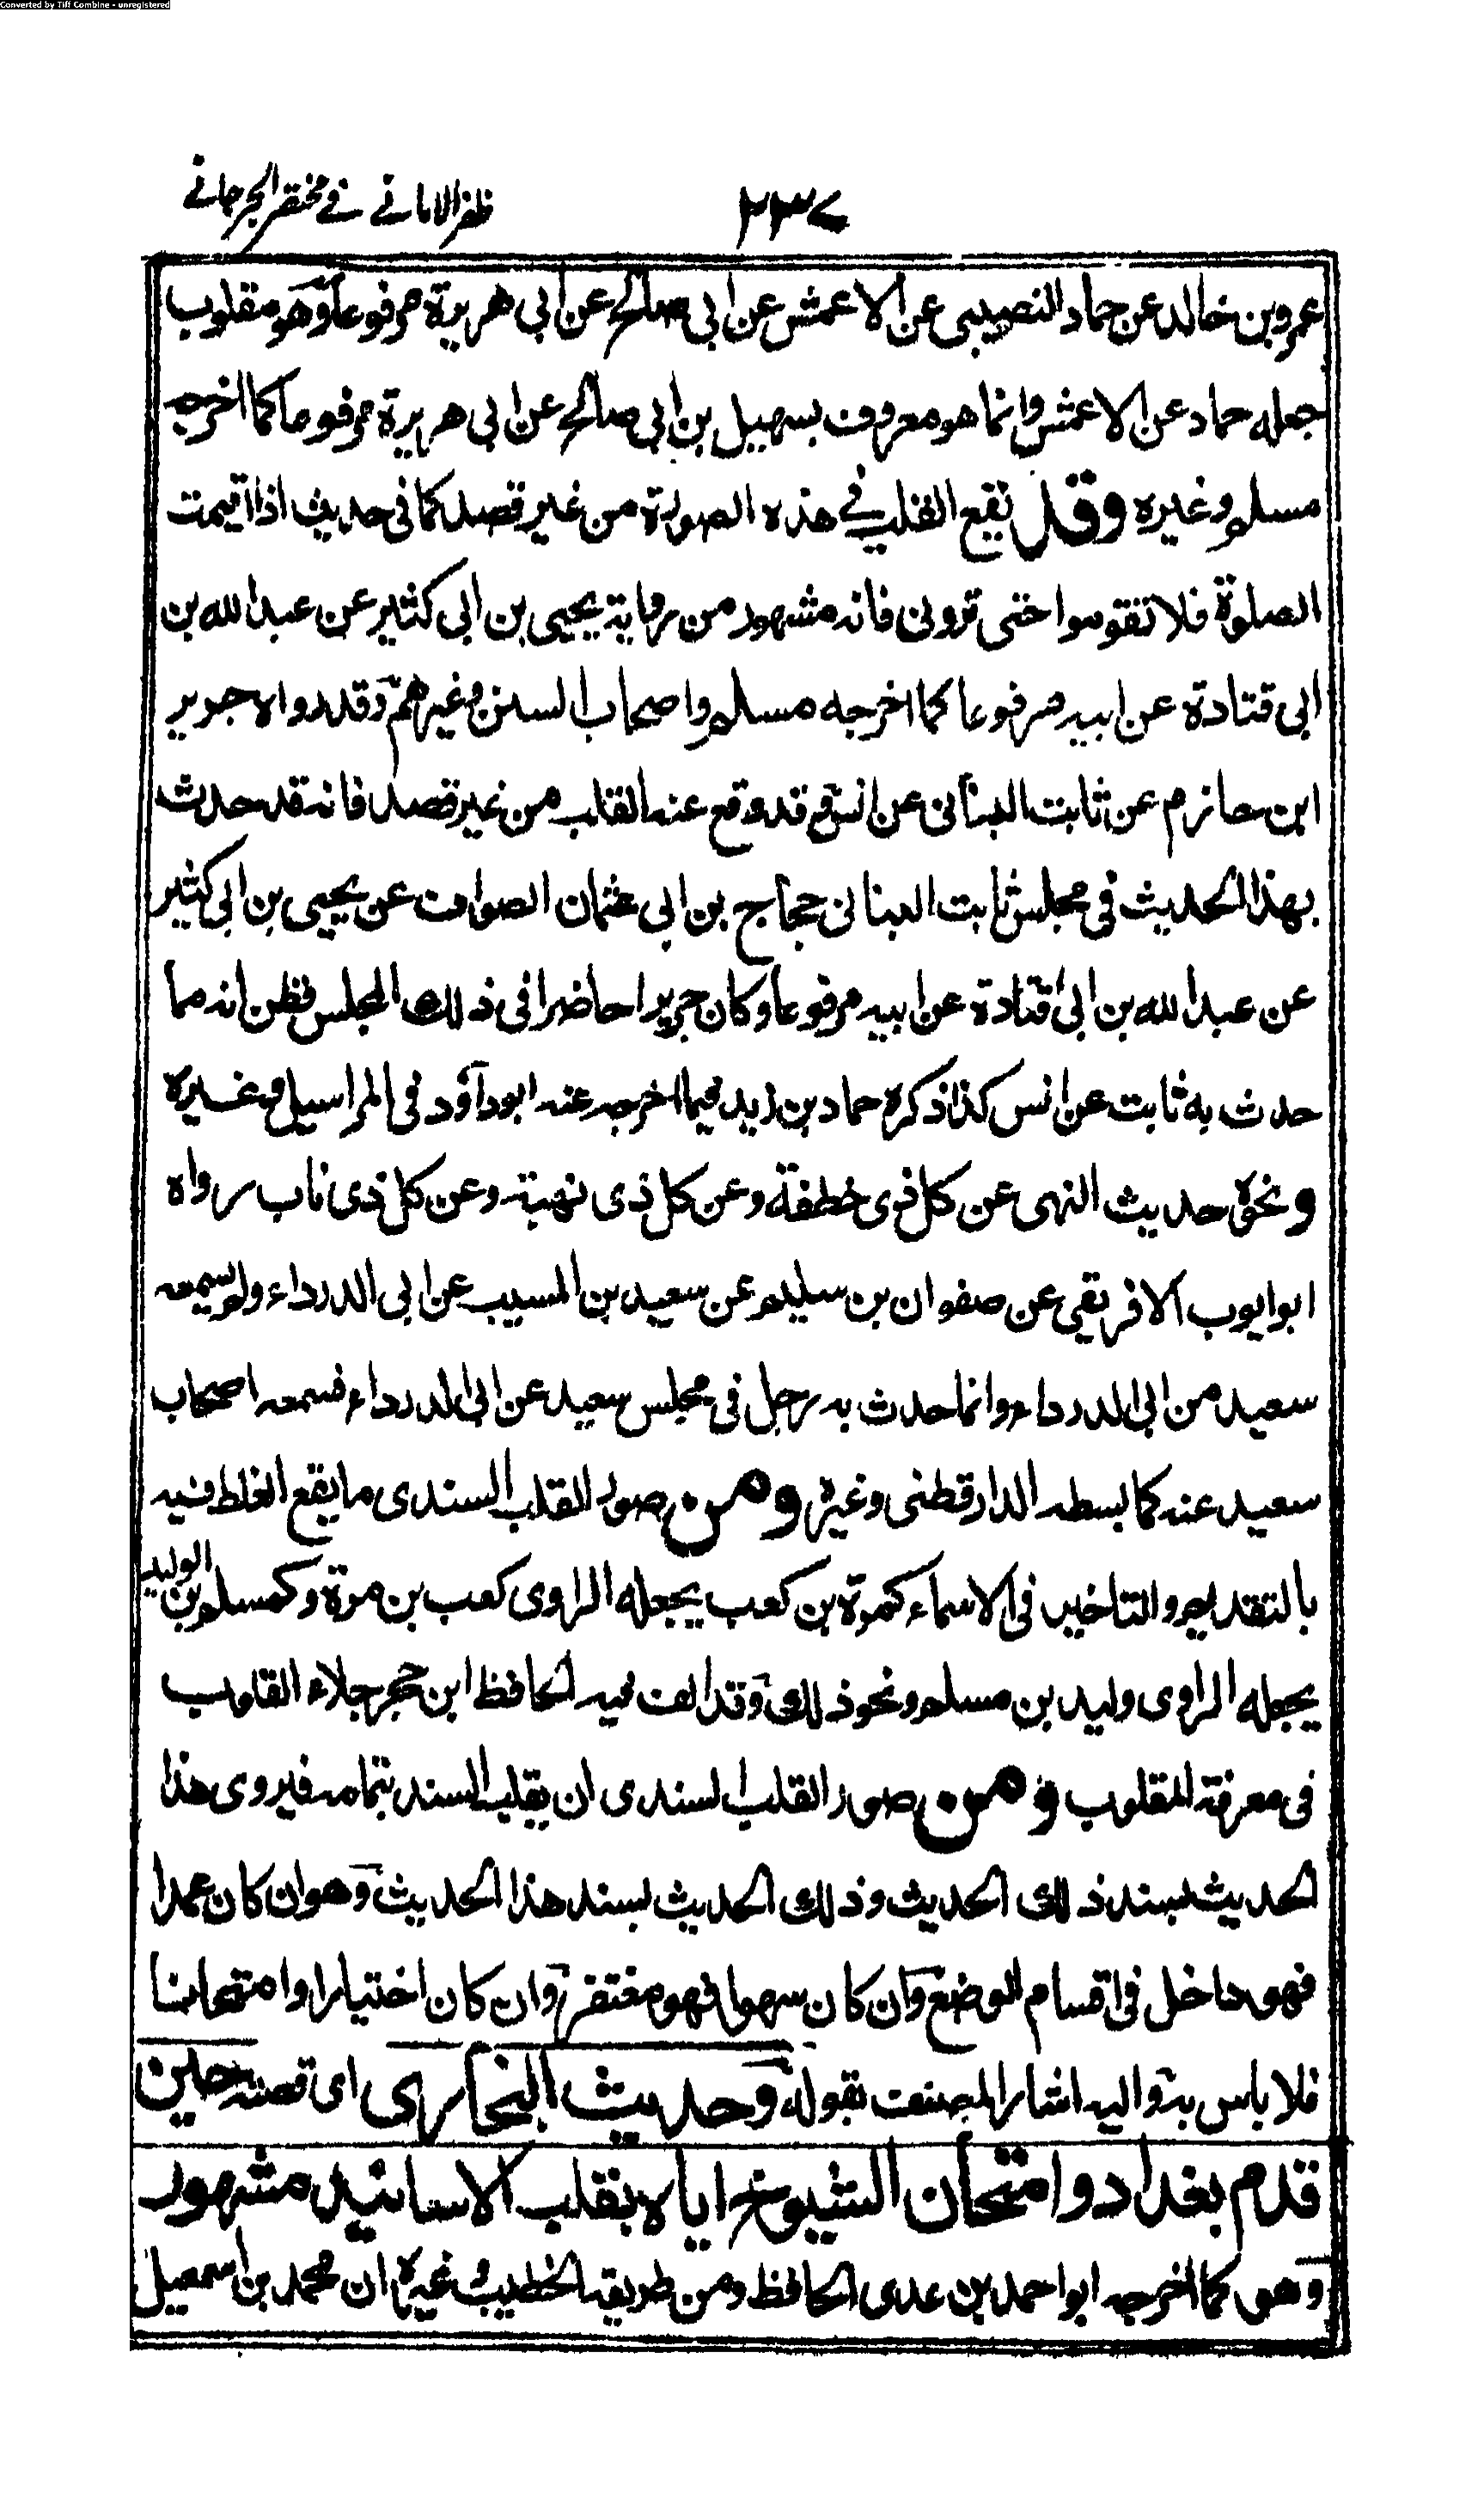 Converted by Tiff Combine - unregistered
ظفر الامانے فے مختصر الجرجانے
۲۳۷
عمرو بن خالد عن حماد النصيبى عن الاعمش عن ابى صالح عن ابى هريرة مرفوعا وهو مقلوب
جعله حماد عن الاعمش وانما هو معروف بسهيل بن ابى صالح عن ابى هريرة مرفوعا كما اخرجه
مسلم وغيره وقد يقع القلب فے هذه الصورة من غير قصد كما فى حديث اذا اقيمت
الصلوة فلا تقوموا حتى ترونى فانه مشهور من رواية يحيى بن ابى كثير عن عبد الله بن
ابى قتادة عن ابيه مرفوعا كما اخرجه مسلم واصحاب السنن وغيرهم وقد رواه جرير
ابن حازم عن ثابت البنانى عن انس وقد وقع عنه القلب من غير قصد فانه قد حدث
بهذا الحديث فى مجلس ثابت البنانى حجاج بن ابى عثمان الصواف عن يحيى بن ابى كثير
عن عبد الله بن ابى قتادة عن ابيه مرفوعا وكان جرير حاضرا فى ذلك المجلس فظن انه مما
حدث به ثابت عن انس كذا ذكره حماد بن زيد فيما اخرجه عنه ابو داؤد فى المراسيل وغيره
ونحوه حديث النهى عن كل ذى خطفة وعن كل ذى نهبة وعن كل ذى ناب رواه
ابو ايوب الافريقى عن صفوان بن سليم عن سعيد بن المسيب عن ابى الدرداء ولم يسمعه
سعيد من ابى الدرداء وانما حدث به رجل فى مجلس سعيد عن ابى الدرداء فسمعه اصحاب
سعيد عنه كما بسطه الدارقطنى وغيره ومن صور القلب السندى ما يقع الغلط فيه
بالتقديم والتاخير فى الاسماء كمرة بن كعب يجعله الراوى كعب بن مرة وكمسلم بن الوليد
يجعله الراوى وليد بن مسلم ونحو ذلك وقد الف فيه الحافظ ابن حجر جلاء القلوب
فى معرفة المقلوب ومن صور القلب السندى ان يقلب السند بتمامه فيروى هذا
الحديث بسند ذلك الحديث وذلك الحديث بسند هذا الحديث وهو ان كان عمدا
فهو داخل فى اقسام الوضع وان كان سهوا فهو مغتفر وان كان اختبارا وامتحانا
فلا باس به واليه اشار المصنف بقوله وحديث البخارى اى قصته حين
قدم بغداد وامتحان الشيوخ اياه بقلب الاسانيد مشهور
وهو كما اخرجه ابو احمد بن عدى الحافظ ومن طريقه الخطيب وغيره ان محمد بن اسمعيل